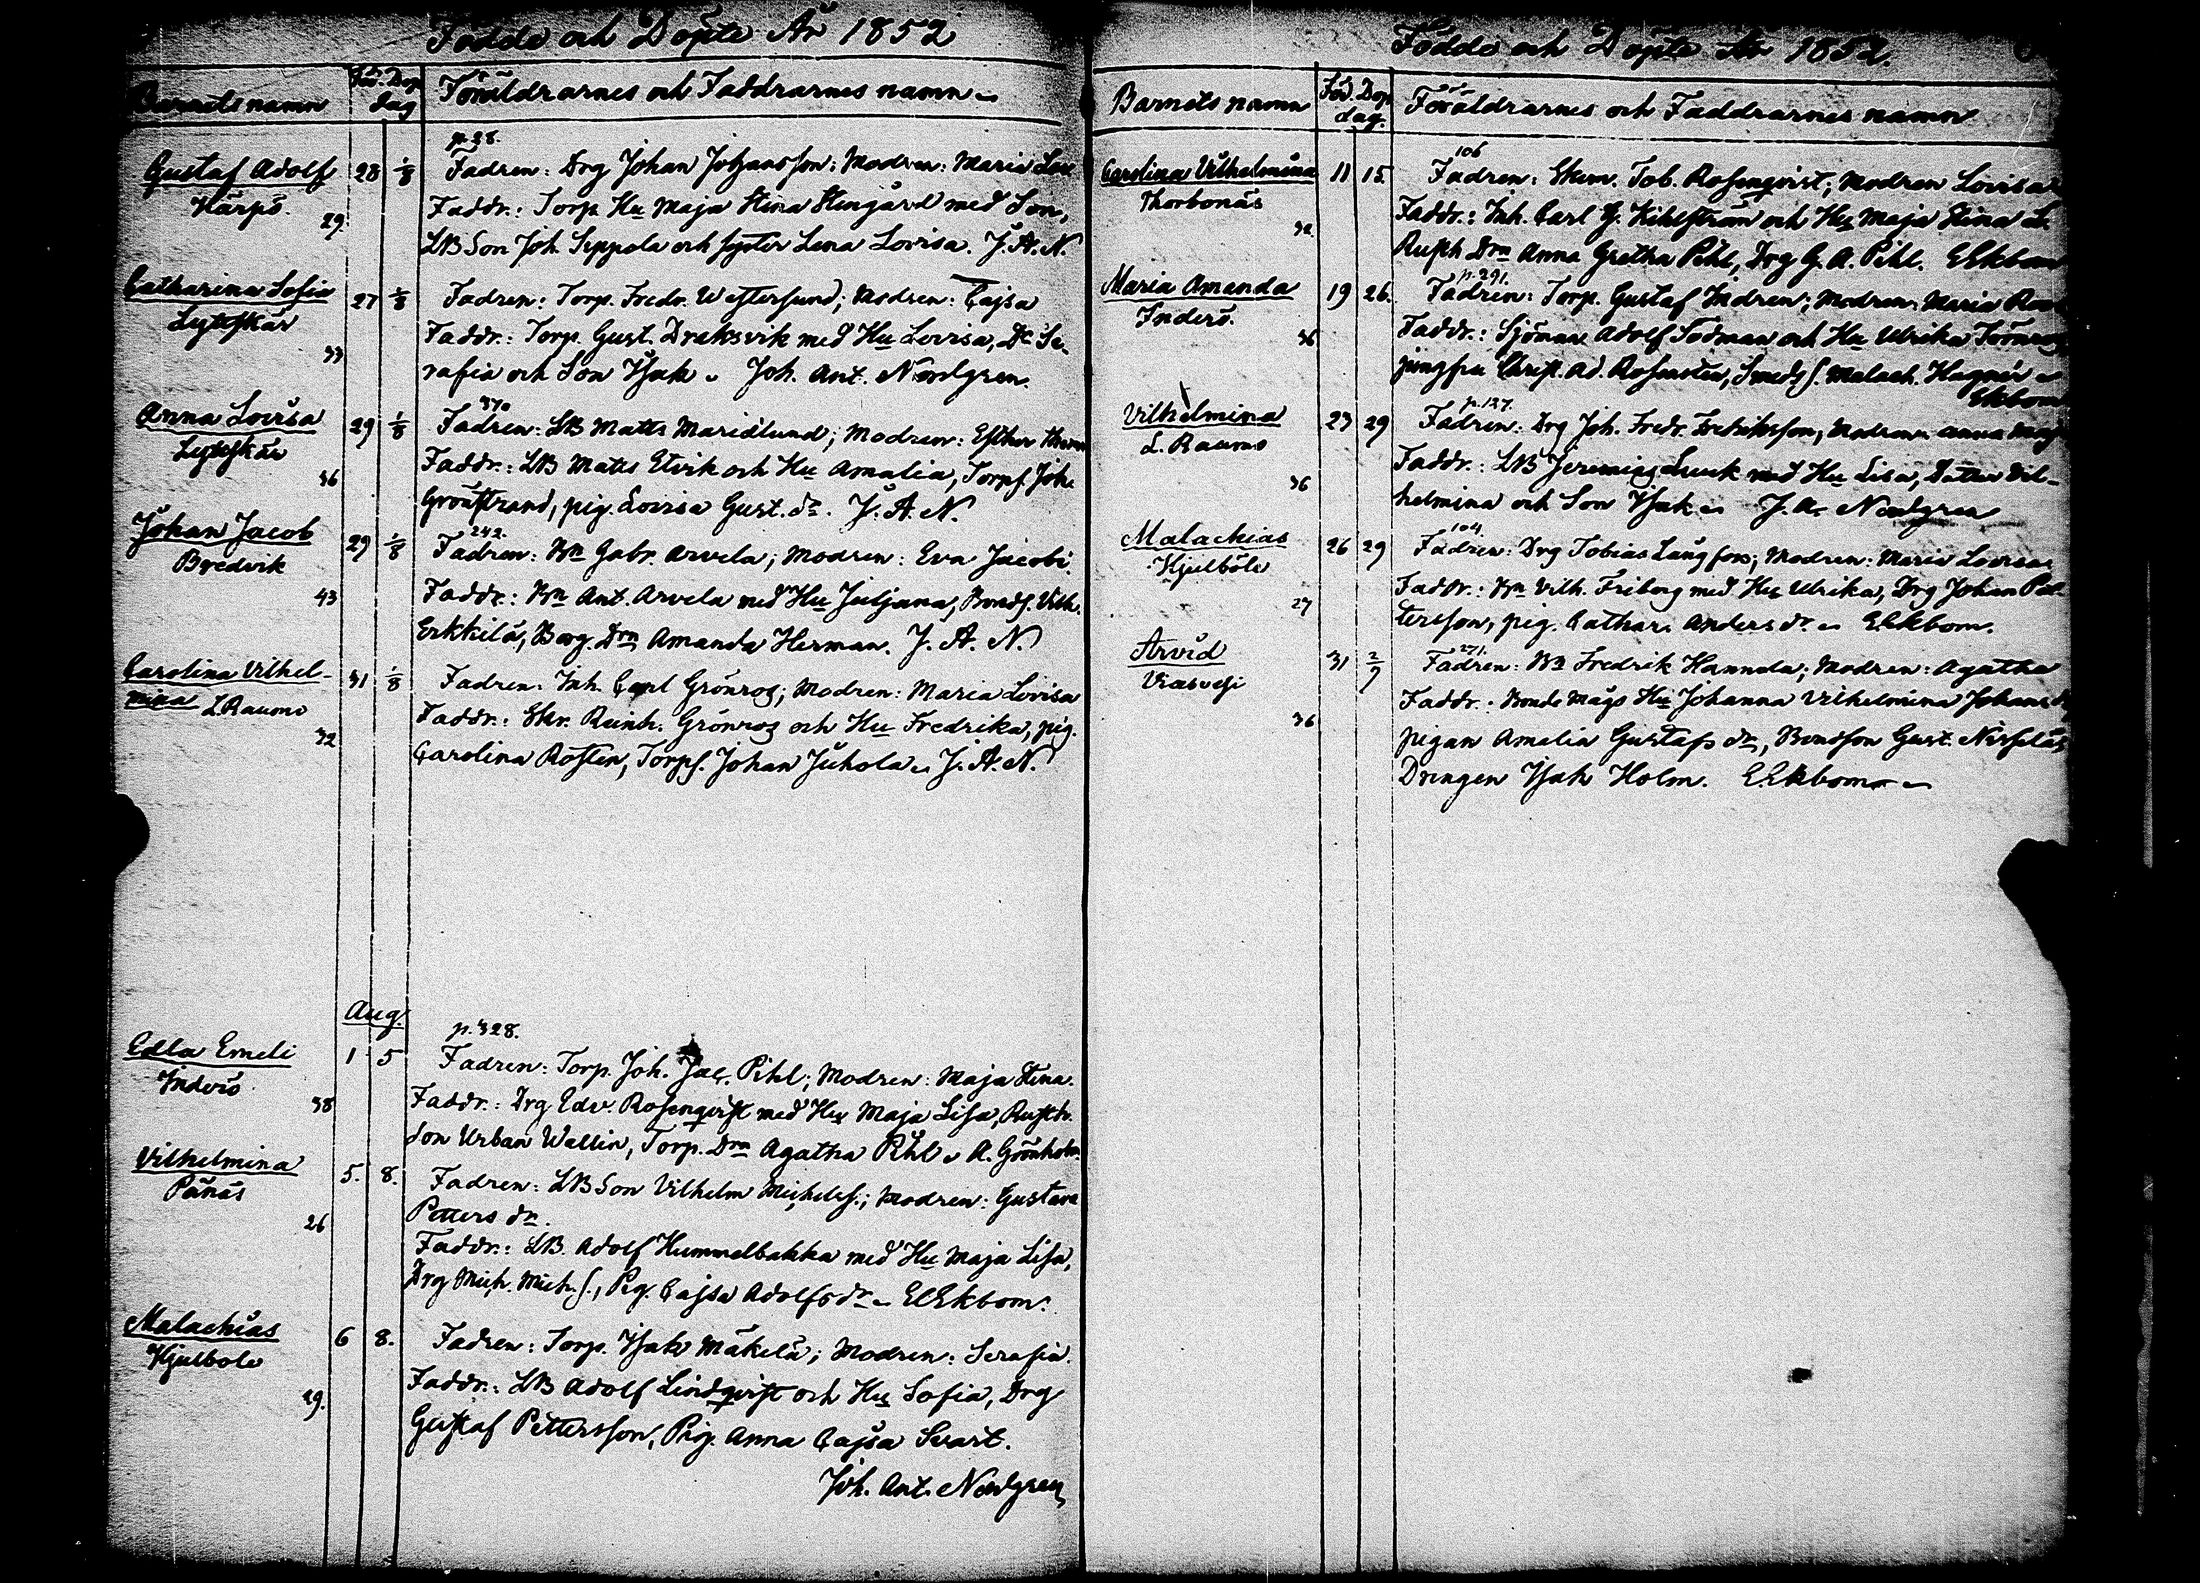 Födde och Döpte År 1852
Barnets namn
Föd. Dop
dag
Föräldrarnes och Faddrarnes namn
Gustaf Adolf
Härpö.
29.
28 1/8
p. 28.
Fadren: Drg Johan Johansson; Modren: Maria
Faddr.: Torp. Hu Maja Stina Stengård med Son,
LB Son Joh. Seppala och syster Lena Lovisa. J. A. N.
Catharina Sofia
Lyteskär
33
27 1/8
Fadren: Torp. Fredr. Westersund; Modren: Cajsa
Faddr.: Torp. Gust. Draksvik med Hu Lovisa, Dr Se-
rafia och Son Isak. Joh. Ant. Nordgren.
Anna Lovisa
Lyteskär
36
29 1/8
370
Fadren: LB Matts Maridlund; Modren: Esther
Faddr.: LB Matts Etvik och Hu Amalia, Torps. Joh.
Grönstrand, pig. Lovisa Gust. dr. J. A. N.
Johan Jacob
Bredvik
43
29 1/8
242.
Fadren: Bn Gabr. Arvela; Modren: Eva Jacobi.
Faddr.: Bn Ant. Arvela med Hu Juljana, Bonds. Vilh.
Erkkilä, Borg. Drn Amanda Herman. J. A. N.
Carolina Vilhel-
mina L. Raumo
32
31 1/8
Fadren: Inh. Carl Grönroz; Modren: Maria Lovisa
Faddr.: Skr. Reinh. Grönroz och Hu Fredrika, pig.
Carolina Rosten, Torps. Johan Juhola. J. A. N.
Aug.
Edla Emeli
Inderö
38
1 5
p. 328.
Fadren: Torp. Joh. Jac. Pihl; Modren: Maja Stina.
Faddr.: Drg Edv. Rosenqvist med Hu Maja Lisa, Rusth.
Son Urban Wallin, Torp. Drn Agatha Pihl. A. Grönholm.
Vilhelmina
Pånäs
26
5. 8.
Fadren: LB Son Vilhelm Michelss.; Modren: Gustava
Petters dr.
Faddr.: LB. Adolf Hummelbakka med Hu Maja Lisa,
Drg Mich. Mich. s., Pig. Cajsa Adolfs dr. E Ekbom.
Malachias
Hjulböle
29.
6 8.
Fadren: Torp. Isak Mäkelä; Modren: Serafia.
Faddr.: LB Adolf Lindqvist och Hu Sofia, Drg
Gustaf Pettersson, Pig. Anna Cajsa Svart.
Joh. Ant. Nordgren
Födde och Döpte År 1852.
Barnets namn
Föd. Dop
dag.
Föräldrarnes och Faddrarnes namn
Carolina Vilhelmina
Thorbonäs
32.
11 15.
106
Fadren: Skem. Tob. Rosenqvist; Modren Lovisa
Faddr.: Inh. Carl G. Kihlström och Hu Maja Stina
Rusth Drn Anna Gretha Pihl, Drg G. A. Pihl. E Ekbom
Maria Amanda
Inderö.
36
19 26.
p. 291.
Fadren: Torp. Gustaf Indren; Modren: Maria
Faddr.: Sjöman Adolf Södman och Hu Ulrika
jungfru Christ. Ad. Rosensten, Smeds s. Malach. Hagner
Ekbom
Vilhelmina
L. Raumo
36
23 29
p. 127.
Fadren: Drg Joh. Fredr. Fredriksson; Modren: Anna
Faddr.: LB Jeremias Luuk med Hu Lisa, Dotter Vil-
helmina och Son Isak. J. A. Nordgren
Malachias
Hjulböle
27
26 29
104
Fadren: Drg Tobias Långfors; Modren: Maria Lovisa
Faddr.: Bn Vilh. Friberg med Hu Ulrika, Drg Johan Pet-
tersson, pig. Cathar. Anders dr. E Ekbom.
Arvid
Viasvesi
36
31 2/7
271.
Fadren: Bn Fredrik Hannula; Modren: Agatha
Faddr.: Bonde mågs Hu Johanna Vilhelmina Johans dr,
pigan Amalia Gustafs dr, Bondson Gust.
Drengen Isak Holm. E. Ekbom